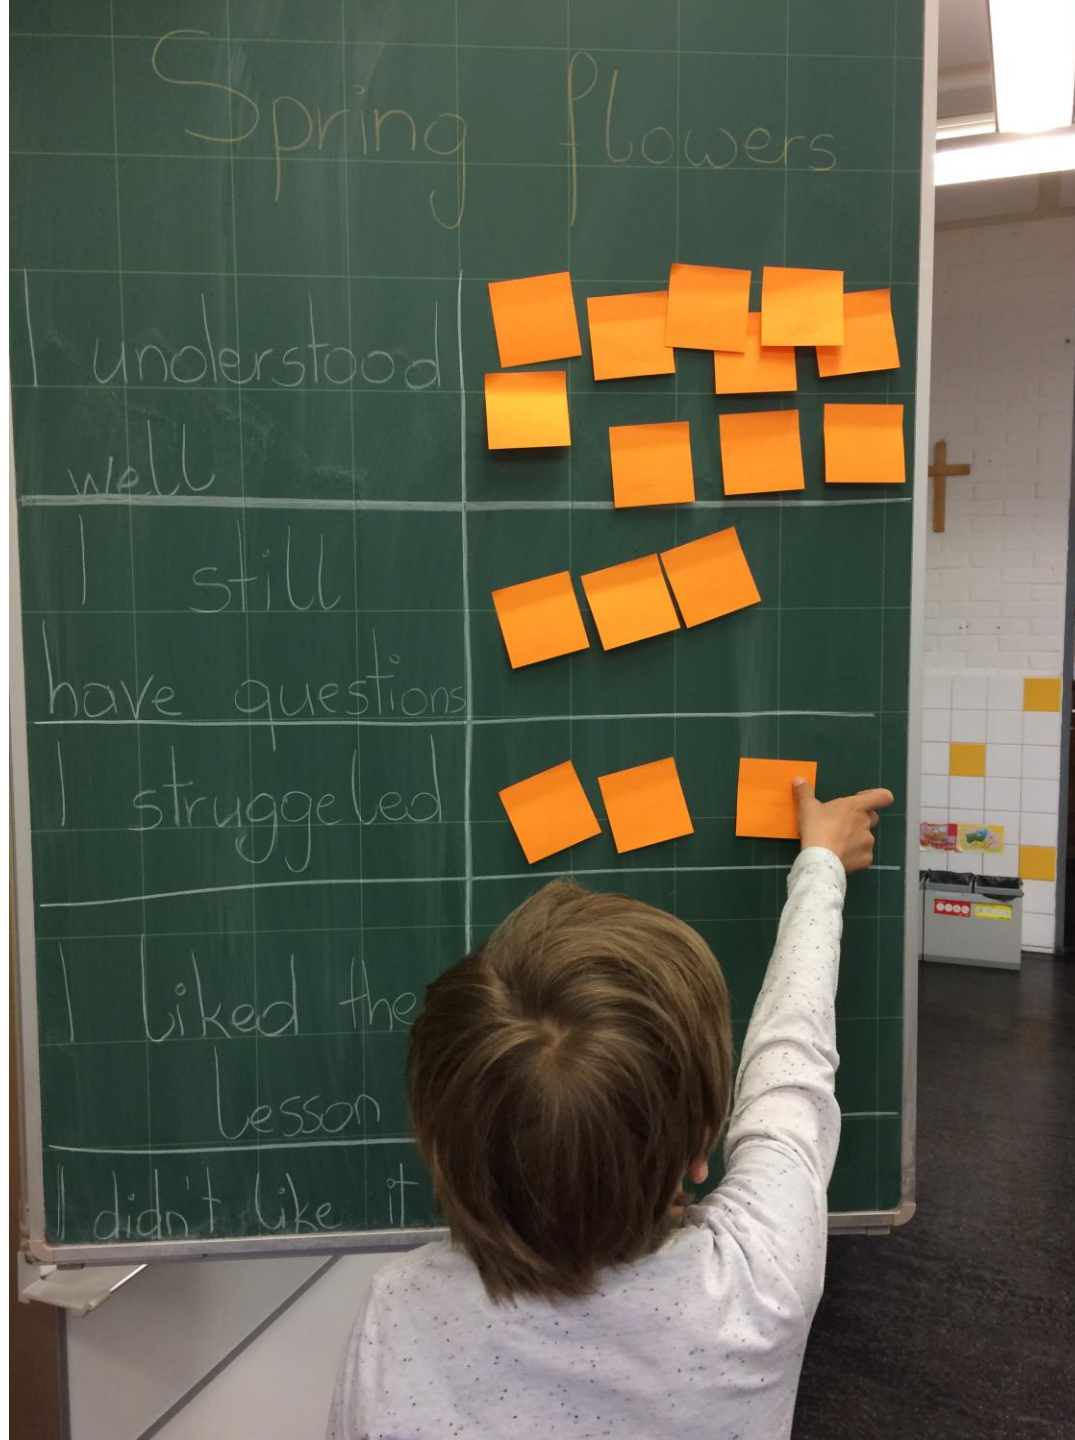 Spring flowers
I understood
well
I still
have questions
I struggeled
I liked the
Lesson
I didn't like it